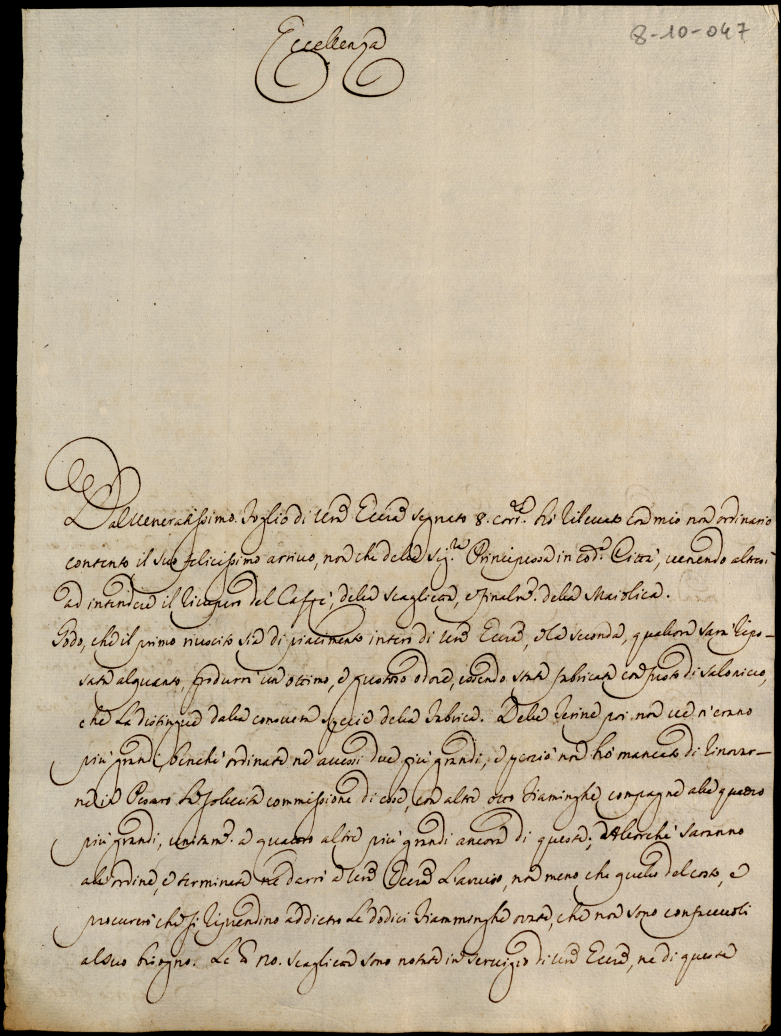 8-10-047
Eccellenza
Dal Veneratissimo Foglio di Vrã Eccza segnato 8. corrte hò rilevato con mio non ordinario
contento il suo felicissimo arrivo, non che della Sigra Principessa in codta Città, venendo altresì
ad intendere il ricupero del Caffè, della Scaglietta, e finalmte della Maiolica.
Godo, che il primo riuscito sia di piacimento intero di Vrã Eccza, e la seconda, qualora sarà ripo-
sata alquanto, produrrà un ottimo, e gustoso odore, essendo stata fabricata con fusto di Salonicco,
che la distingue dalla consueta specie della Fabrica. Delle Terine poi non ve n'erano
più grandi, benchè ordinate ne avessi due più grandi, e perciò non hò mancato di rinovar-
ne in Pesaro la sollecita commissione di esse, con altre otto Fiaminghe compagne alle quattro
più grandi, unitamte a quattro altre più grandi ancora di queste; allorchè saranno
all'ordine, e terminate ne darò a Vrã Eccza l'avviso, non meno che quello del costo, e
procurerò che si riprendino addietro le dodici Fiamminghe ovate, che non sono confacevoli
al suo bisogno. Le 20. Scagliette sono notate in servigio di Vrã Eccza, ne di queste